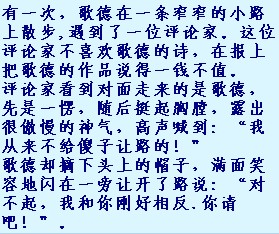 有一次，歌德在一条窄窄的小路
上散步,遇到了一位评论家。这位
评论家不喜欢歌德的诗，在报上
把歌德的作品说得一钱不值。
评论家看到对面走来的是歌德，
先是一愣，随后挺起胸膛，露出
很傲慢的神气，高声喊到：“我
从来不给傻子让路的！”
歌德却摘下头上的帽子，满面笑
容地闪在一旁让开了路说：“对
不起，我和你刚好相反.你请
吧！”.